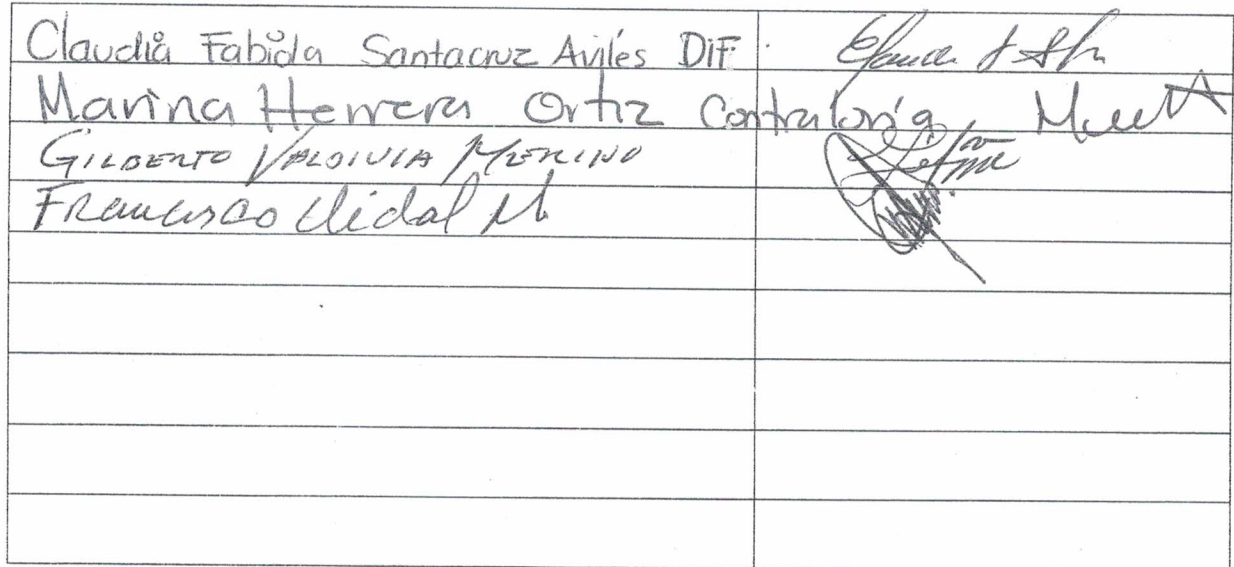 Claudia Fabiola Santacruz Avilés DIF
Marina Herrera Ortiz Contraloría
GILBERTO VALDIVIA MERINO
Francisco Vidal M.